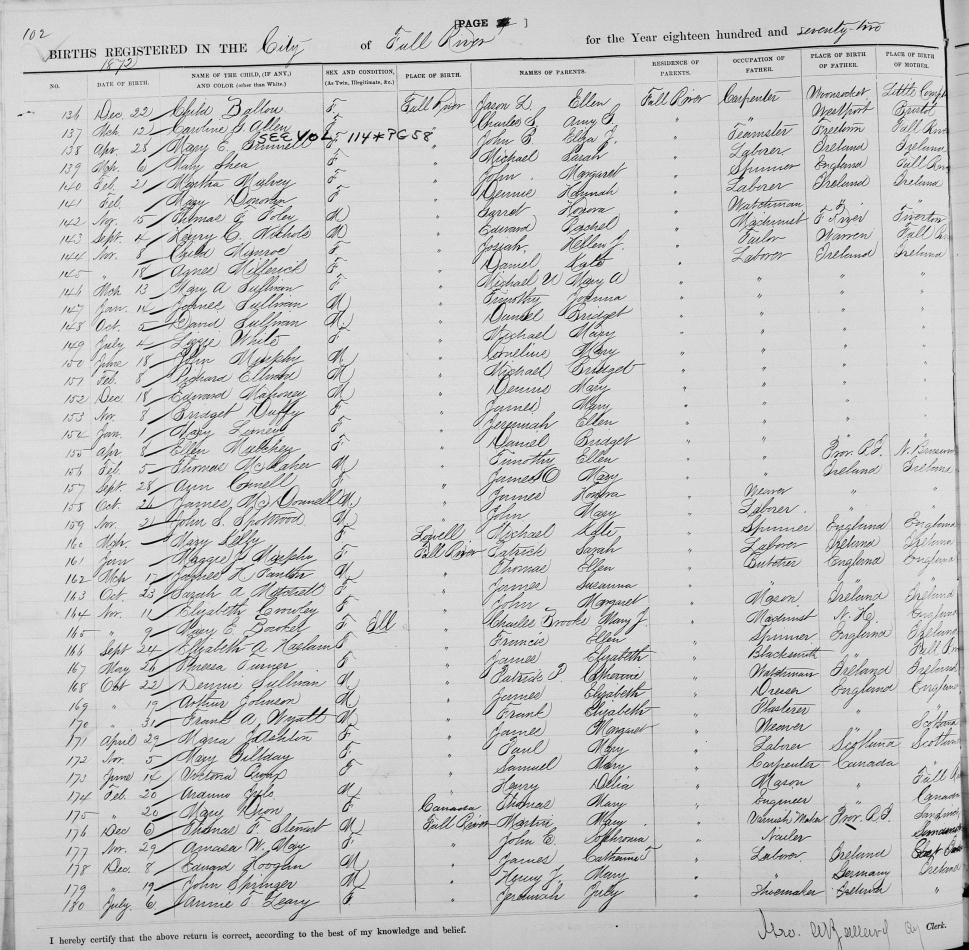 102 [PAGE ]
BIRTHS REGISTERED IN THE City of Fall River for the Year eighteen hundred and seventy-two
1872
NO. DATE OF BIRTH. NAME OF THE CHILD, (IF ANY,) AND COLOR (other than White.) SEX AND CONDITION, (As Twin, Illegitimate, &c.) PLACE OF BIRTH. NAMES OF PARENTS. RESIDENCE OF PARENTS. OCCUPATION OF FATHER. PLACE OF BIRTH OF FATHER. PLACE OF BIRTH OF MOTHER.
136 Dec 22 Child Ballou F Fall River Jason L. Ellen Fall River Carpenter Woonsocket Little Comp
137 Mch 12 Caroline S Allen F " Charles S Amy S. " Westport Bristol
SEE VOL 114*PG58
138 Apr. 28 Mary E. F " John E. Eliza J. " Teamster Freetown Fall River
139 Mch. 6 Mary Shea F " Michael Sarah " Laborer Ireland Ireland
140 Feb. 21 Martha Mulvey F " John Margaret " Spinner England Fall River
141 Feb. Mary Donovan F " Dennis Hannah " Laborer Ireland Ireland
142 Nov. 15 Thomas F. Foley M " Garret Honora " Watchman " "
143 Sept. 4 Henry C. Nichols M " Edward Rachel " Machinist F. River Tiverton
144 Nov. 8 Child Munroe F " Josiah Hellen J. " Tailor Warren Fall River
145 " 18 Agnes F " Daniel Kate " Laborer Ireland Ireland
146 Mch 13 Mary A Sullivan F " Michael Mary A " " " "
147 Jan. 14 James Sullivan M " Timothy Joanna " " " "
148 Oct. 5 David Sullivan M " Daniel Bridget " " " "
149 July 4 Lizzie White F " Michael Mary " " " "
150 June 18 John Murphy M " Cornelius Mary " " " "
151 Feb. 8 Richard M " Michael Bridget " " " "
152 Dec 18 Edward Mahoney M " Dennis Mary " " " "
153 Nov. 8 Bridget Duffy F " James Mary " " " "
154 Jan. 1 Mary F " Jeremiah Ellen " " " "
155 Apr 8 Ellen F " Daniel Bridget " " " "
156 Feb. 5 Thomas M " Timothy Ellen " " Prov. R.I. N.
157 Sept. 28 Ann Connell F " James O Mary " " Ireland Ireland
158 Oct. 26 James McDonnell M. " James Honora " Weaver " "
159 Nov. 21 John S. Spottwood M " John Mary " Laborer " "
160 Mch. Mary Kelly F Lowell Michael Kate " Spinner England England
161 Jan Maggie Murphy F Fall River Patrick Sarah " Laborer Ireland Ireland
162 Mch 17 James H M " Thomas Ellen " Butcher England England
163 Oct. 23 Sarah A F " James Susanna " " "
164 Nov. 11 Elizabeth Crowley F " John Margaret " Mason Ireland Ireland
165 " 9 Mary E. F Ill " Charles Brooks Mary J. " Machinist N.H. England
166 Sept 24 Elizabeth A Haslam F " Francis Ellen " Spinner England Ireland
167 May 26 Theresa Turner F " James Elizabeth " Blacksmith " Fall River
168 Oct 22 Dennis Sullivan M " Patrick D. Catherine " Watchman Ireland Ireland
169 " 19 Arthur Johnson M " James Elizabeth " Dresser England England
170 " 31 Frank A. Wyatt M " Frank Elizabeth " Plasterer " "
171 April 29 Maria Ashton F " James Margaret " Weaver " Scotland
172 Nov. 5 Mary F " Paul Mary " Laborer Scotland Scotland
173 June 14 Victoria F " Samuel Mary " Carpenter Canada "
174 Feb. 20 M " Henry Delia " Mason Fall River
175 " 20 Mary F Canada Thomas Mary " Engineer Canada
176 Dec 6 Thomas F. Stewart M Fall River Martin Mary " Varnish Maker Prov. R.I.
177 Nov. 29 Amasa W. May " John E. Sophronia " Nailer
178 Dec. 8 Edward M " James Catharine F " Laborer Ireland
179 " 19 John Springer M " Henry J. Mary " " Germany Ireland
180 July. 6 Annie F Leary F " Jeremiah July " Shoemaker Ireland "
I hereby certify that the above return is correct, according to the best of my knowledge and belief. Clerk.